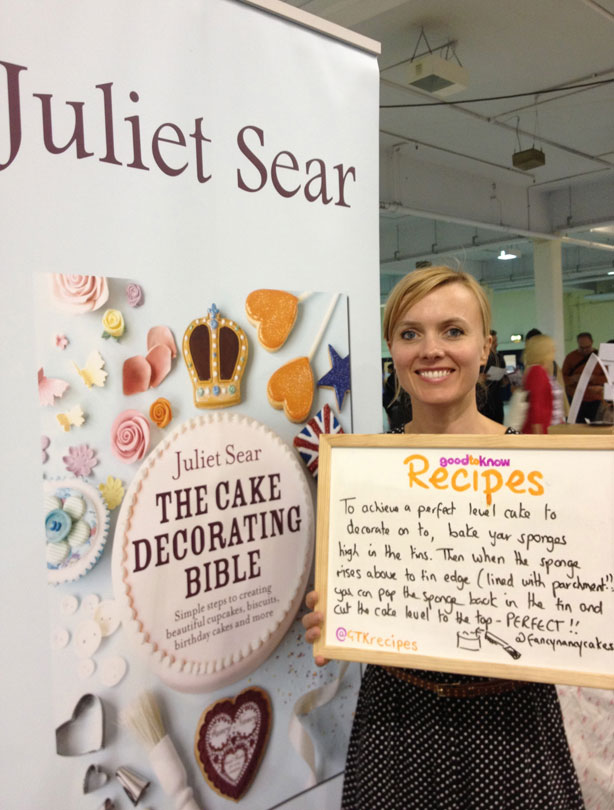 Juliet Sear
Juliet Sear
THE CAKE
DECORATING
BIBLE
Simple steps to creating
beautiful cupcakes, biscuits,
birthday cakes and more
goodtoknow
Recipes
To achieve a perfect level cake to
decorate on to, bake your sponges
high in the tins. Then when the sponge
rises above to tin edge (lined with parchment!!)
you can pop the sponge back in the tin and
cut the cake level to the top - PERFECT!!
@fancynancycakes
@GTKrecipes